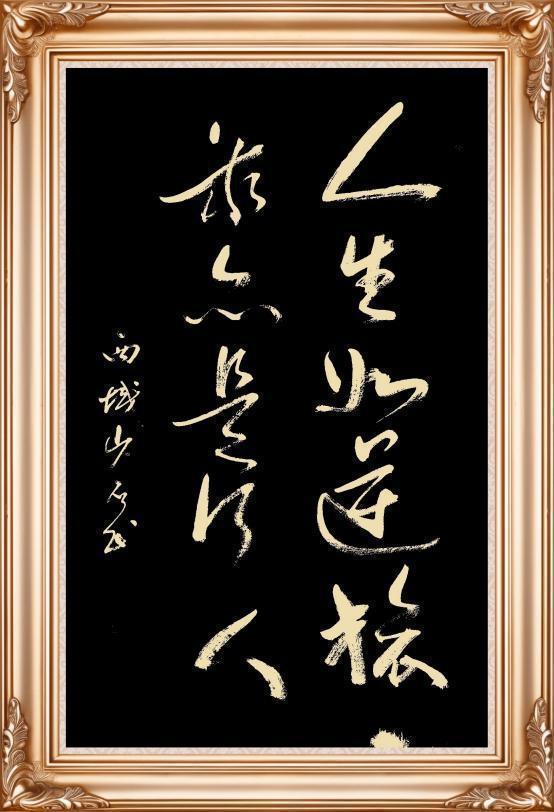 人生如逆旅
我亦是行人
西域少石书